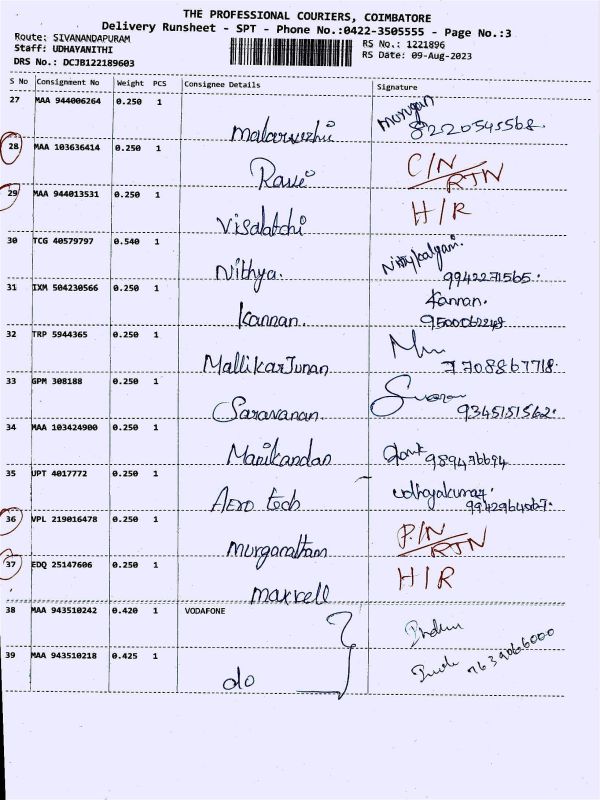 THE PROFESSIONAL COURIERS, COIMBATORE
Delivery Runsheet - SPT - Phone No.:0422-3505555 - Page No.:3
Route: SIVANANDAPURAM RS No.: 1221896
Staff: UDHAYANITHI RS Date: 09-Aug-2023
DRS No.: DCJB122189603
S No Consignment No Weight PCS Consignee Details Signature
27 MAA 944006264 0.250 1 Murugan
8220545568.
28 MAA 103636414 0.250 1 C/N
Ravi RTN
29 MAA 944013531 0.250 1 H/R
Visalatchi
30 TCG 40579797 0.540 1
Nithya. 9942271565.
31 IXM 504230566 0.250 1 Kannan.
Kannan.
32 TRP 5944365 0.250 1
MallikarJunan 7708867718.
33 GPM 308188 0.250 1
Saravanan. 9345151562.
34 MAA 103424900 0.250 1
Manikandan
35 UPT 4017772 0.250 1 udhayakumar.
Aero tech
36 VPL 219016478 0.250 1 P/N
RTN
37 EDQ 25147606 0.250 1 H/R
maxwell
38 MAA 943510242 0.420 1 VODAFONE
39 MAA 943510218 0.425 1 7639066000
do